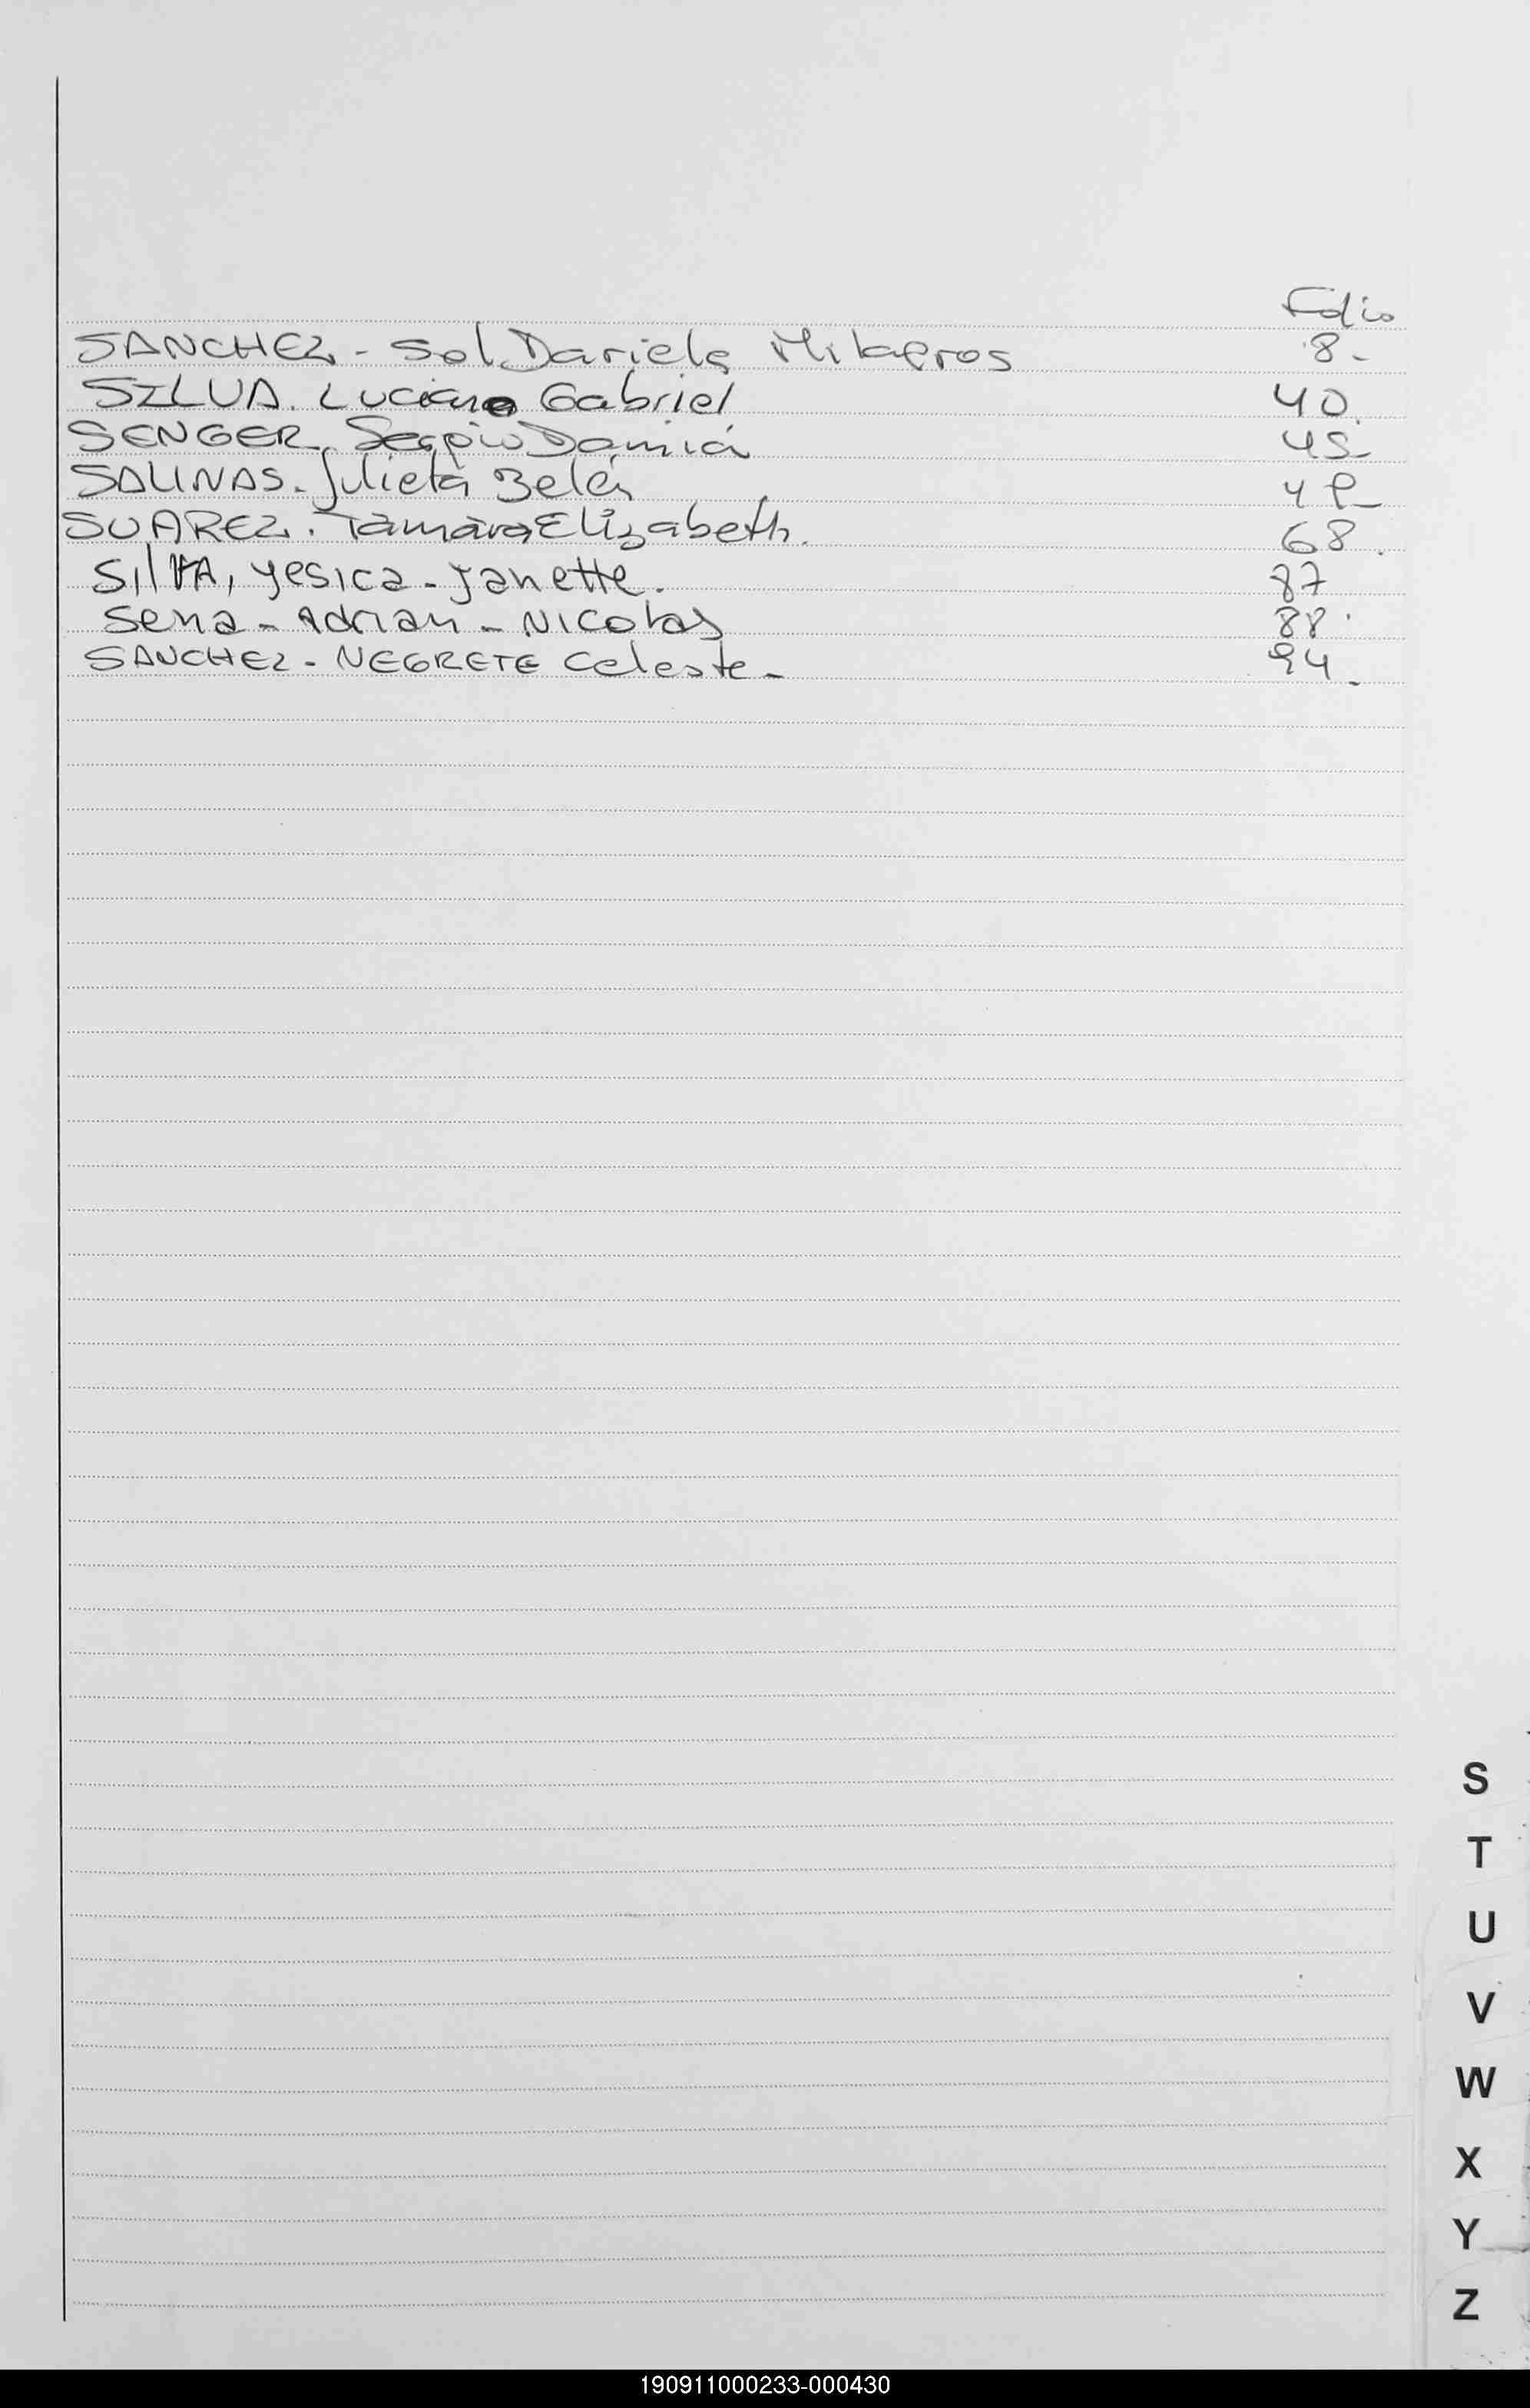 Folio
SANCHEZ - Sol Daniela Milagros 8.-
SILVA. Luciano Gabriel 40.
SENGER. Sergio Damián 45-
SALINAS. Julieta Belén
SUAREZ. Tamara Elizabeth. 68.
SilVA, yesica - Janette. 87
Sena - Adrian - Nicolas 88.
SANCHEZ - NEGRETE Celeste - 94.
S
T
U
V
W
X
Y
Z
190911000233-000430